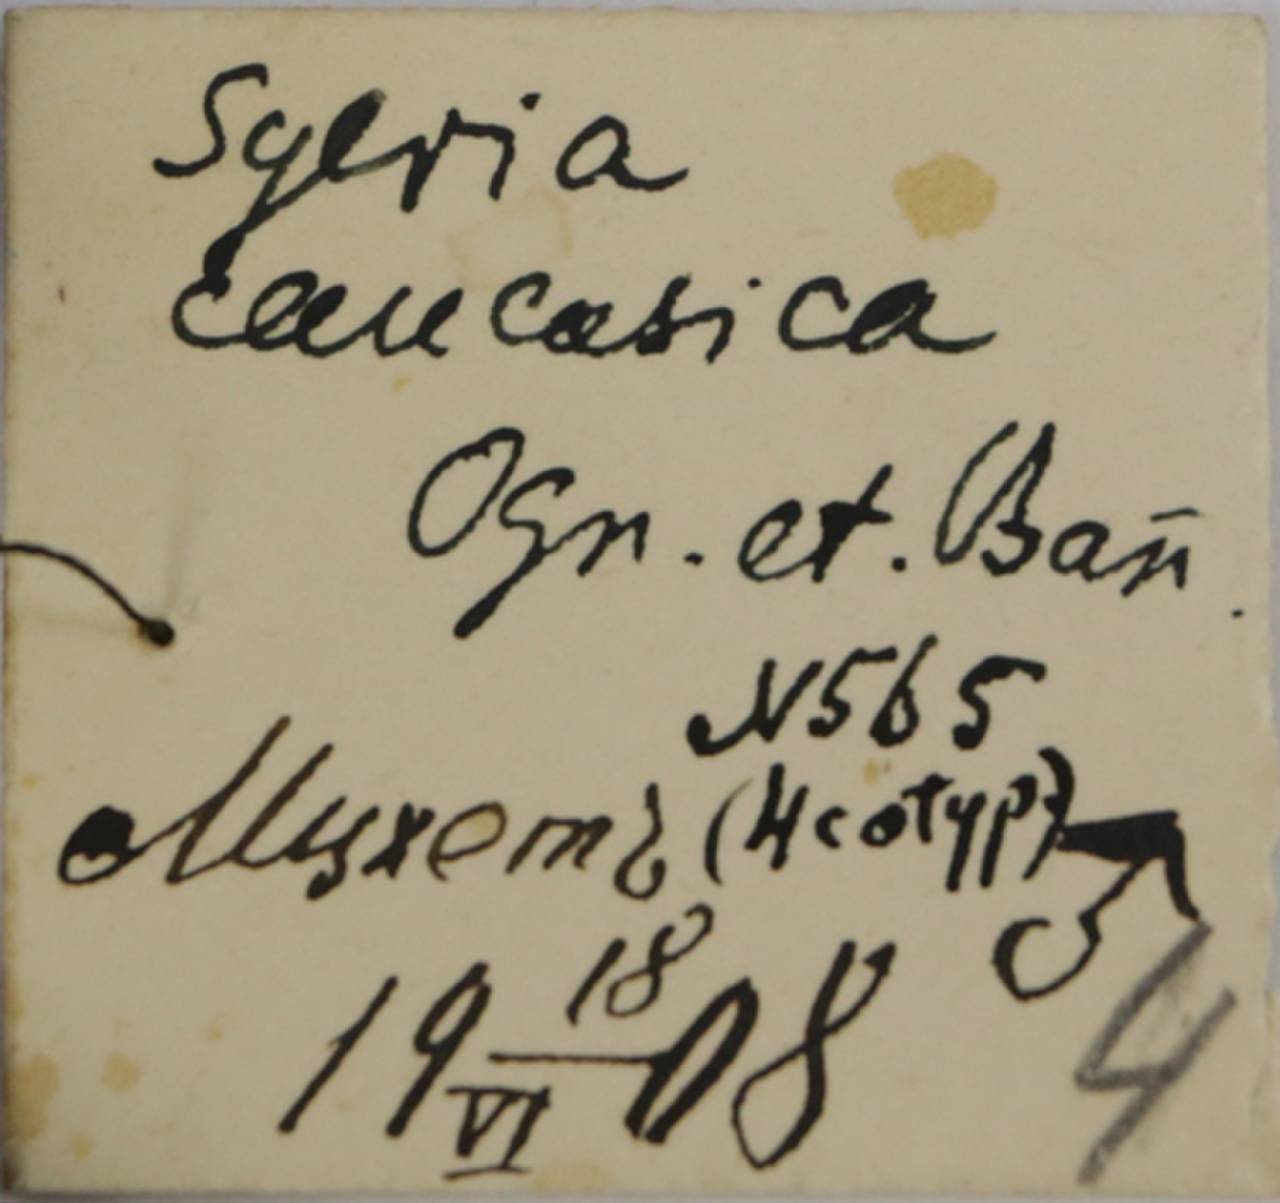 Sylvia
caucasica
Ogn. et. Bañ.
N565
Мцхетъ (4 cotyp) ♂
19 18/VI 08
4